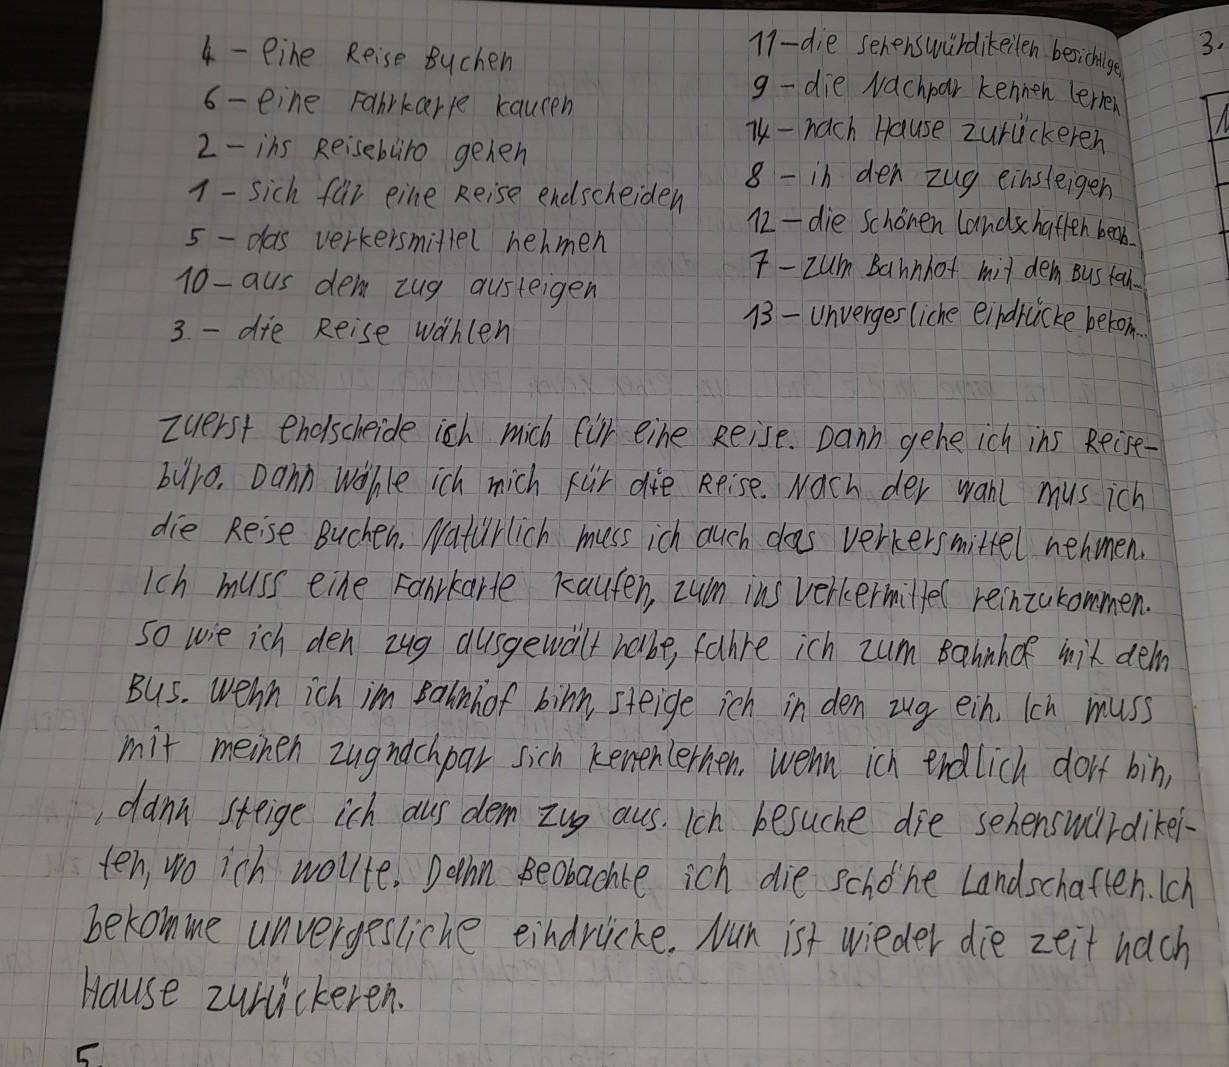 4 - eine Reise Buchen
6 - eine Fahrkarte kaufen
2 - ins Reisebüro gehen
1 - sich für eine Reise endscheiden
5 - das verkersmittel nehmen
10 - aus dem zug austeigen
3 - die Reise wählen
11 - die sehenswürdikeiten besichtige
9 - die Nachpar kennen lernen
14 - nach Hause zurückeren
8 - in den zug einsteigen
12 - die schönen Landschaften beob..
7 - zum Bahnhof mit dem Bus fah...
13 - unvergesliche eindrücke bekom...
3.
zuerst endscheide ich mich für eine Reise. Dann gehe ich ins Reise-
büro. Dann wähle ich mich für die Reise. Nach der wahl mus ich
die Reise Buchen. Natürlich muss ich auch das verkersmittel nehmen.
Ich muss eine Fahrkarte kaufen, zum ins verkermittel reinzukommen.
so wie ich den zug ausgewält habe, fahre ich zum Bahnhof mit dem
Bus. wenn ich im Bahnhof binn, steige ich in den zug ein. Ich muss
mit meinen zugnachpar sich kenenlernen. wenn ich endlich dort bin,
, dann steige ich aus dem zug aus. Ich besuche die sehenswürdikei-
ten, wo ich wollte. Dann Beobachte ich die schöne Landschaften. Ich
bekomme unvergesliche eindrücke. Nun ist wieder die zeit nach
Hause zurückeren.
5.